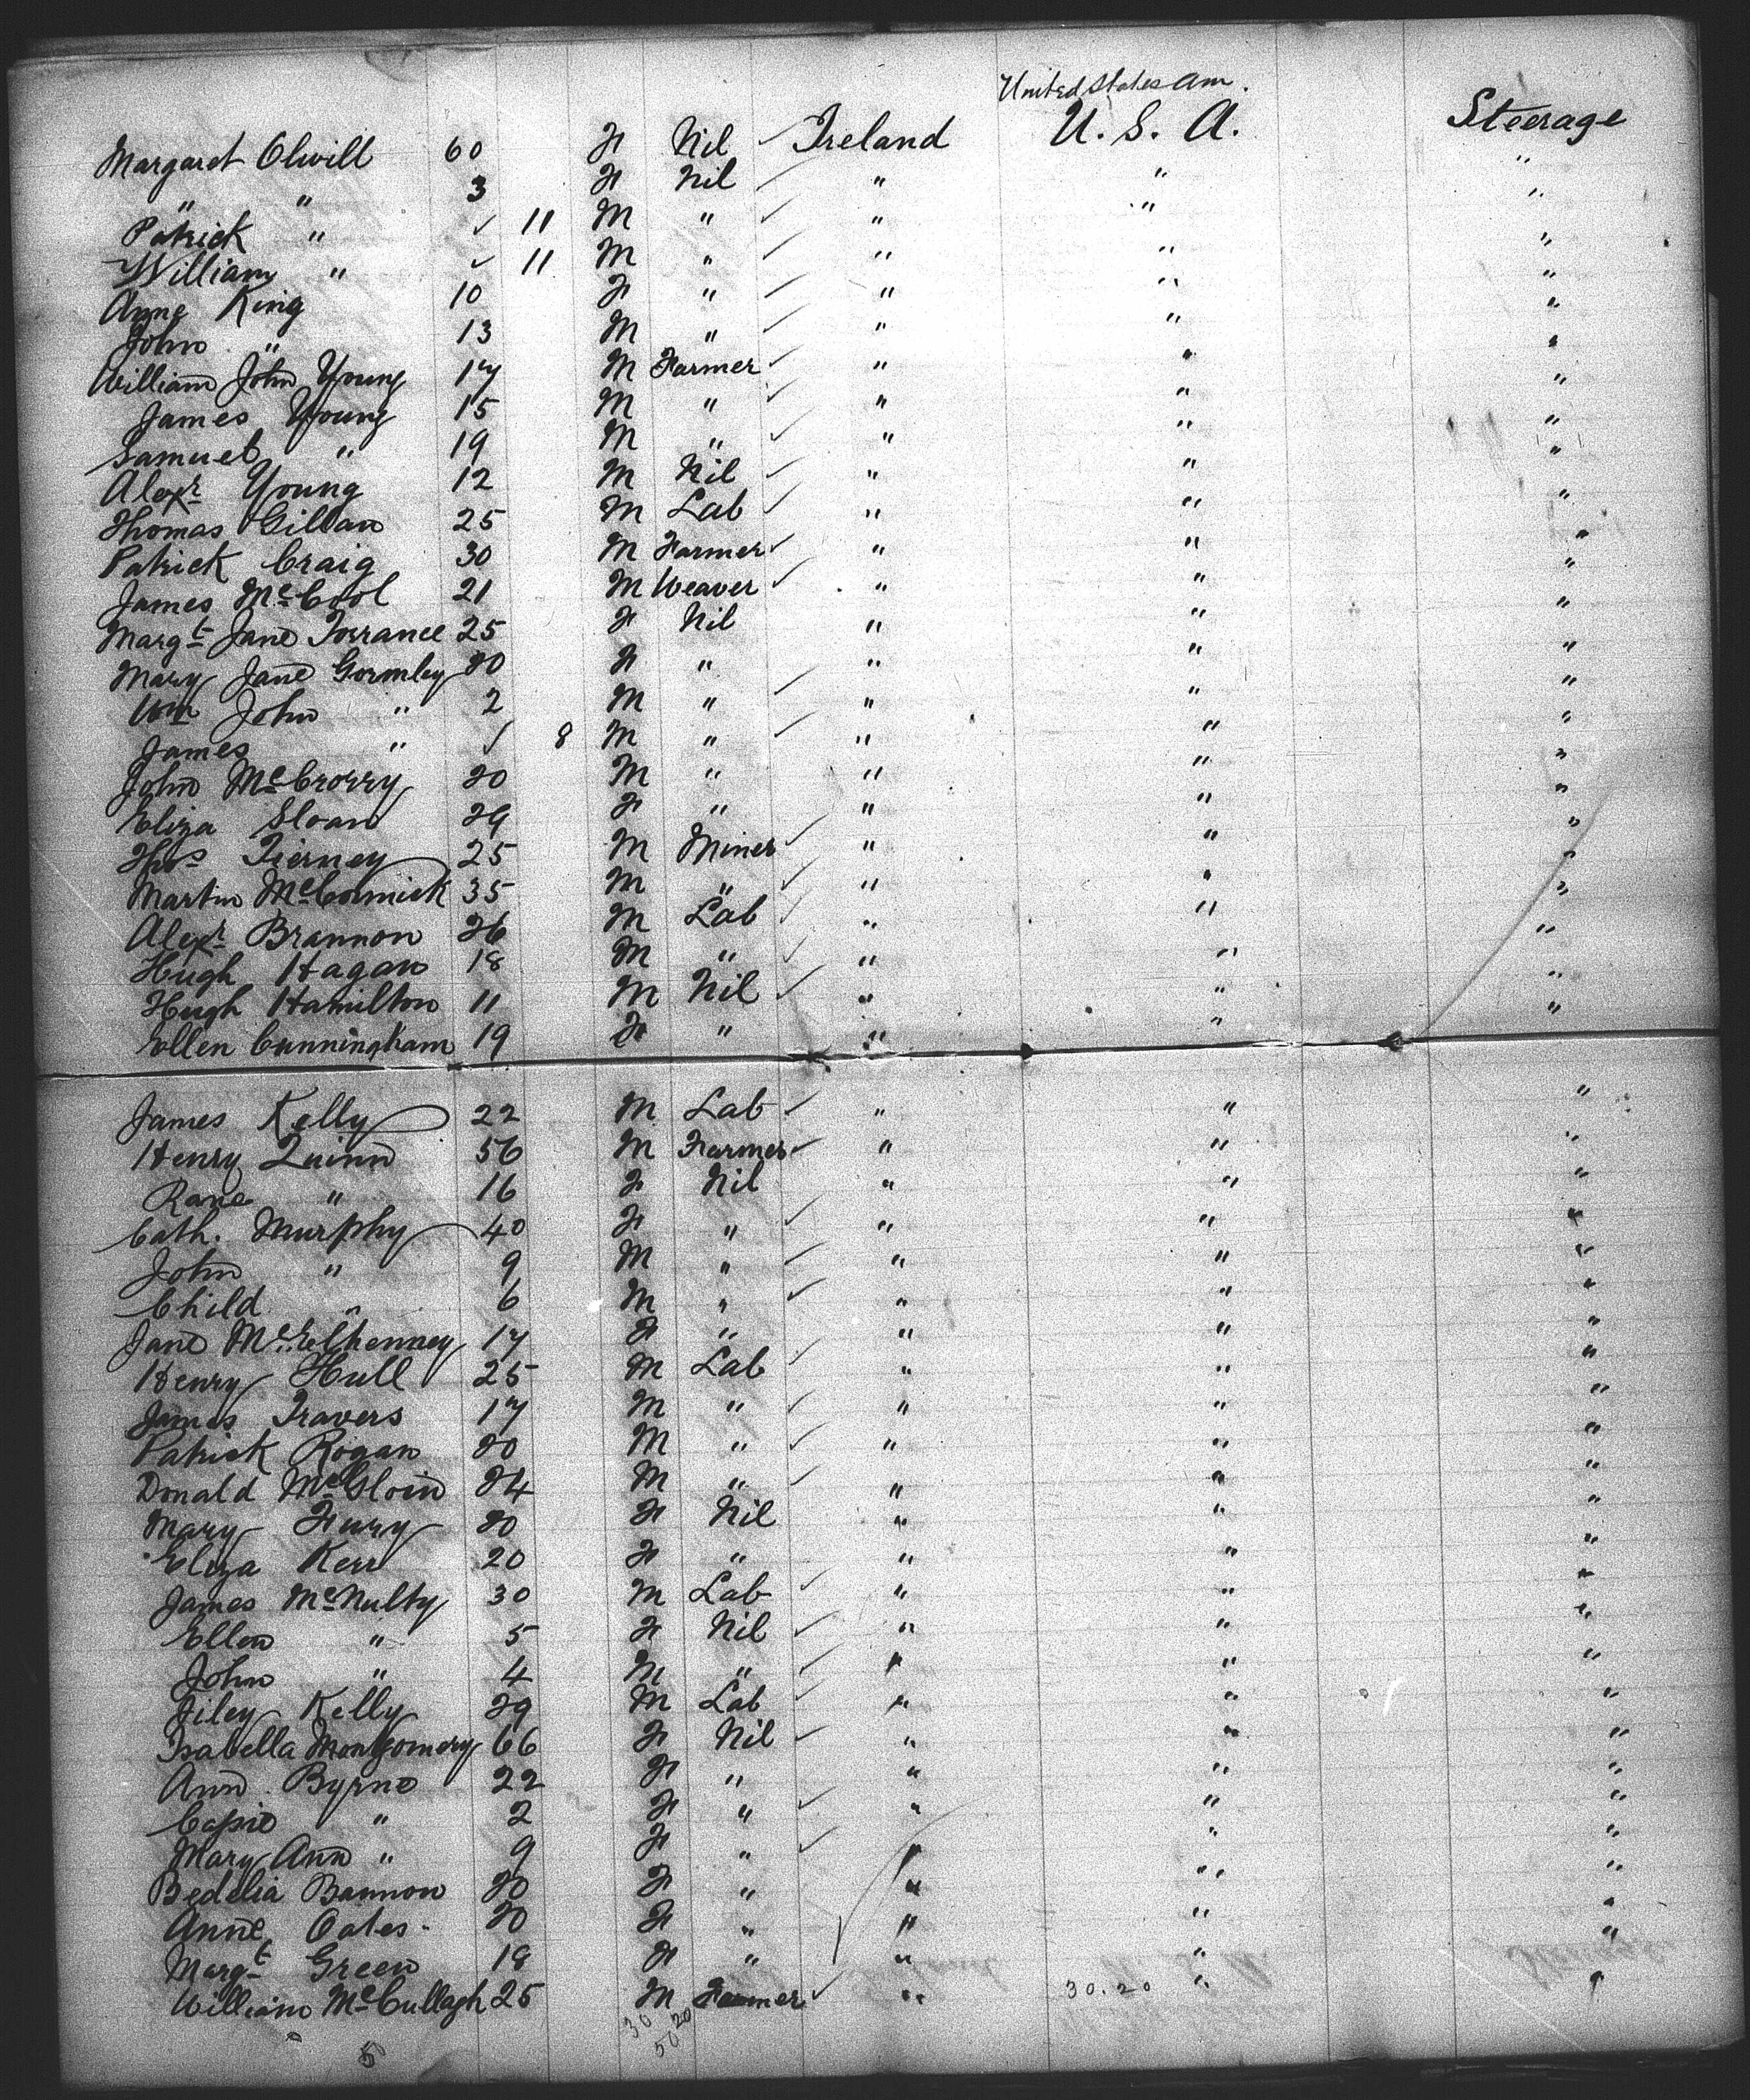 United States Am.
Margaret Olwill 60 F Nil Ireland U. S. A. Steerage
" " 3 F Nil " " "
Patrick " ✓ 11 M " " " "
William " ✓ 11 M " " " "
Anne King 10 F " " " "
John " 13 M " " " "
William John Young 17 M Farmer " " "
James Young 15 M " " " "
Samuel " 19 M " " " "
Alexr Young 12 M Nil " " "
Thomas Gillan 25 M Lab " " "
Patrick Craig 30 M Farmer " " "
James McCool 21 M Weaver " " "
Margt Jane Torrance 25 F Nil " " "
Mary Jane Gormley 20 F " " " "
Wm John " 2 M " " " "
James " ✓ 8 M " " " "
John McCrorry 20 M " " " "
Eliza Sloan 29 F " " " "
Thos Tierney 25 M Miner " " "
Martin McCormick 35 M " " " "
Alexr Brannon 26 M Lab " " "
Hugh Hagan 18 M " " " "
Hugh Hamilton 11 M Nil " " "
Ellen Cunningham 19 F " " " "
James Kelly 22 M Lab " " "
Henry Quinn 56 M Farmer " " "
Rane " 16 F Nil " " "
Cath. Murphy 40 F " " " "
John " 9 M " " " "
Child " 6 M " " " "
Jane McElhenney 17 F " " " "
Henry Hull 25 M Lab " " "
James Travers 17 M " " " "
Patrick Rogan 20 M " " " "
Donald McGloin 24 M " " " "
Mary Fury 20 F Nil " " "
Eliza Kerr 20 F " " " "
James McNulty 30 M Lab " " "
Ellen " 5 F Nil " " "
John " 4 M " " " "
Kelly 29 M Lab " " "
Isabella Montgomery 66 F Nil " " "
Ann Byrne 22 F " " " "
Cassie " 2 F " " " "
Mary Ann " 9 F " " " "
Bedelia Bannon 20 F " " " "
Anne Oates 20 F " " " "
Margt Green 18 F " " " "
William McCullagh 25 M Farmer " 30.20 " "
30 20
5 50